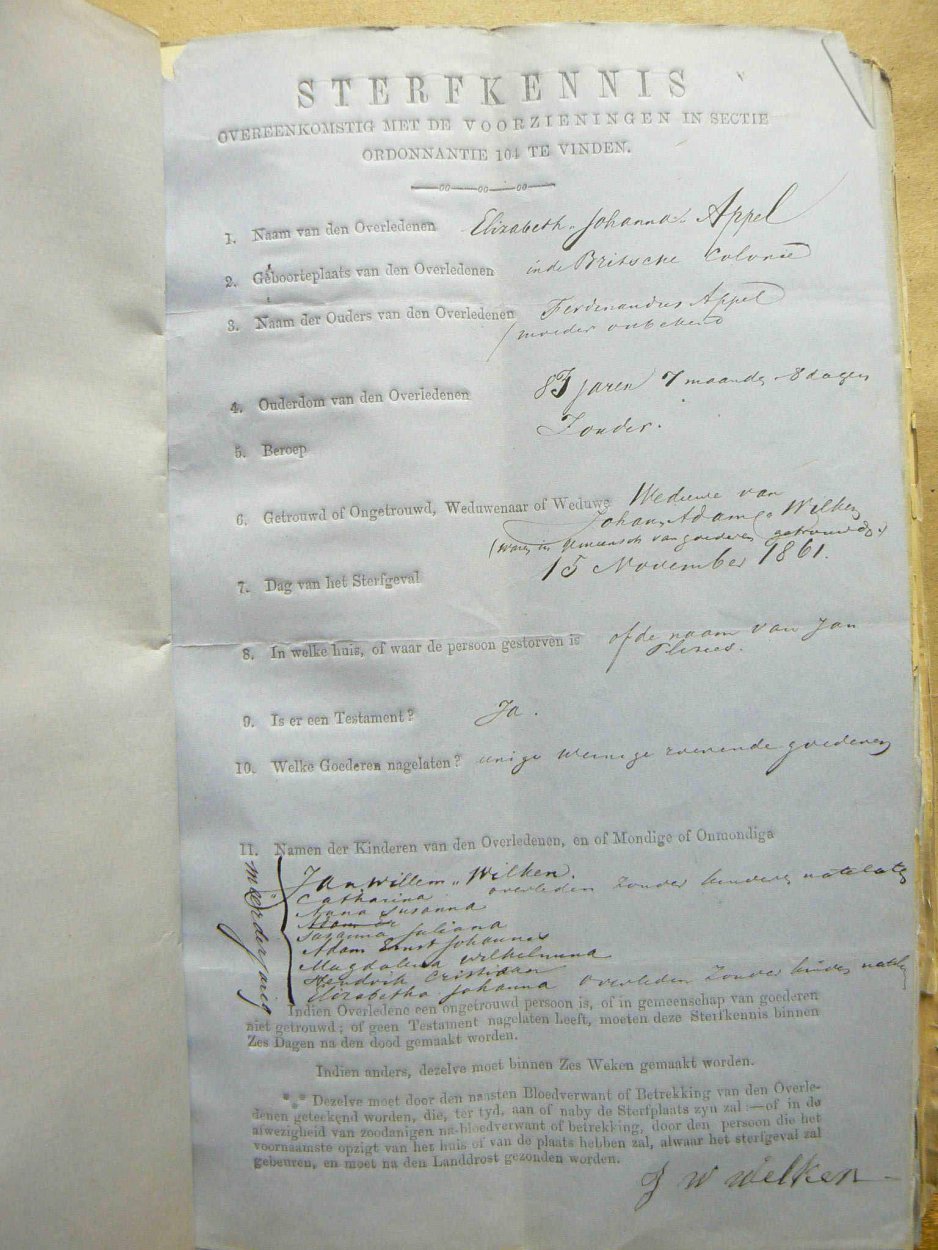 STERFKENNIS
OVEREENKOMSTIG MET DE VOORZIENINGEN IN SECTIE
ORDONNANTIE 104 TE VINDEN.
1. Naam van den Overledenen Elizabeth Johanna Appel
2. Geboorteplaats van den Overledenen in de Britsche Colonie
3. Naam der Ouders van den Overledenen Ferdinandus Appel
moeder onbekend
4. Ouderdom van den Overledenen 83 jaren 7 maande 8 dagen
5. Beroep Zonder.
6. Getrouwd of Ongetrouwd, Weduwenaar of Weduwe Weduwe van
Johan Adam Wilken
(waren in gemeensch van goederen getrouwd)
7. Dag van het Sterfgeval 15 November 1861.
8. In welke huis, of waar de persoon gestorven is of de naam van Jan
9. Is er een Testament? Ja.
10. Welke Goederen nagelaten? eenige weinige roerende goederen
11. Namen der Kinderen van den Overledenen, en of Mondige of Onmondiga
meerderjarig
Jan Willem Wilken.
Catharina overleden zonder kinders natelaten
Anna Susanna
Susanna Juliana
Adam Ernst Johannes
Magdalena Wilhelmina
Hendrik Cristiaan
Elizabetha Johanna overleden zonder kinders natelaten
Indien Overledene een ongetrouwd persoon is, of in gemeenschap van goederen
niet getrouwd; of geen Testament nagelaten heeft, moeten deze Sterfkennis binnen
Zes Dagen na den dood gemaakt worden.
Indien anders, dezelve moet binnen Zes Weken gemaakt worden.
*** Dezelve moet door den naasten Bloedverwant of Betrekking van den Overle-
denen geteekend worden, die, ter tyd, aan of naby de Sterfplaats zyn zal:—of in de
afwezigheid van zoodanigen na-bloedverwant of betrekking, door den persoon die het
voornaamste opzigt van het huis of van de plaats hebben zal, alwaar het sterfgeval zal
gebeuren, en moet na den Landdrost gezonden worden.
J W Wilken